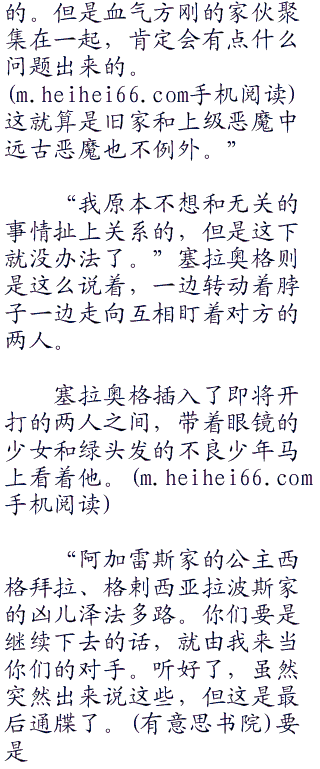 的。但是血气方刚的家伙聚
集在一起，肯定会有点什么
问题出来的。
(m.heihei66.com手机阅读)
这就算是旧家和上级恶魔中
远古恶魔也不例外。”
“我原本不想和无关的
事情扯上关系的，但是这下
就没办法了。”塞拉奥格则
是这么说着，一边转动着脖
子一边走向互相盯着对方的
两人。
塞拉奥格插入了即将开
打的两人之间，带着眼镜的
少女和绿头发的不良少年马
上看着他。(m.heihei66.com
手机阅读)
“阿加雷斯家的公主西
格拜拉、格剌西亚拉波斯家
的凶儿泽法多路。你们要是
继续下去的话，就由我来当
你们的对手。听好了，虽然
突然出来说这些，但这是最
后通牒了。(有意思书院)要
是